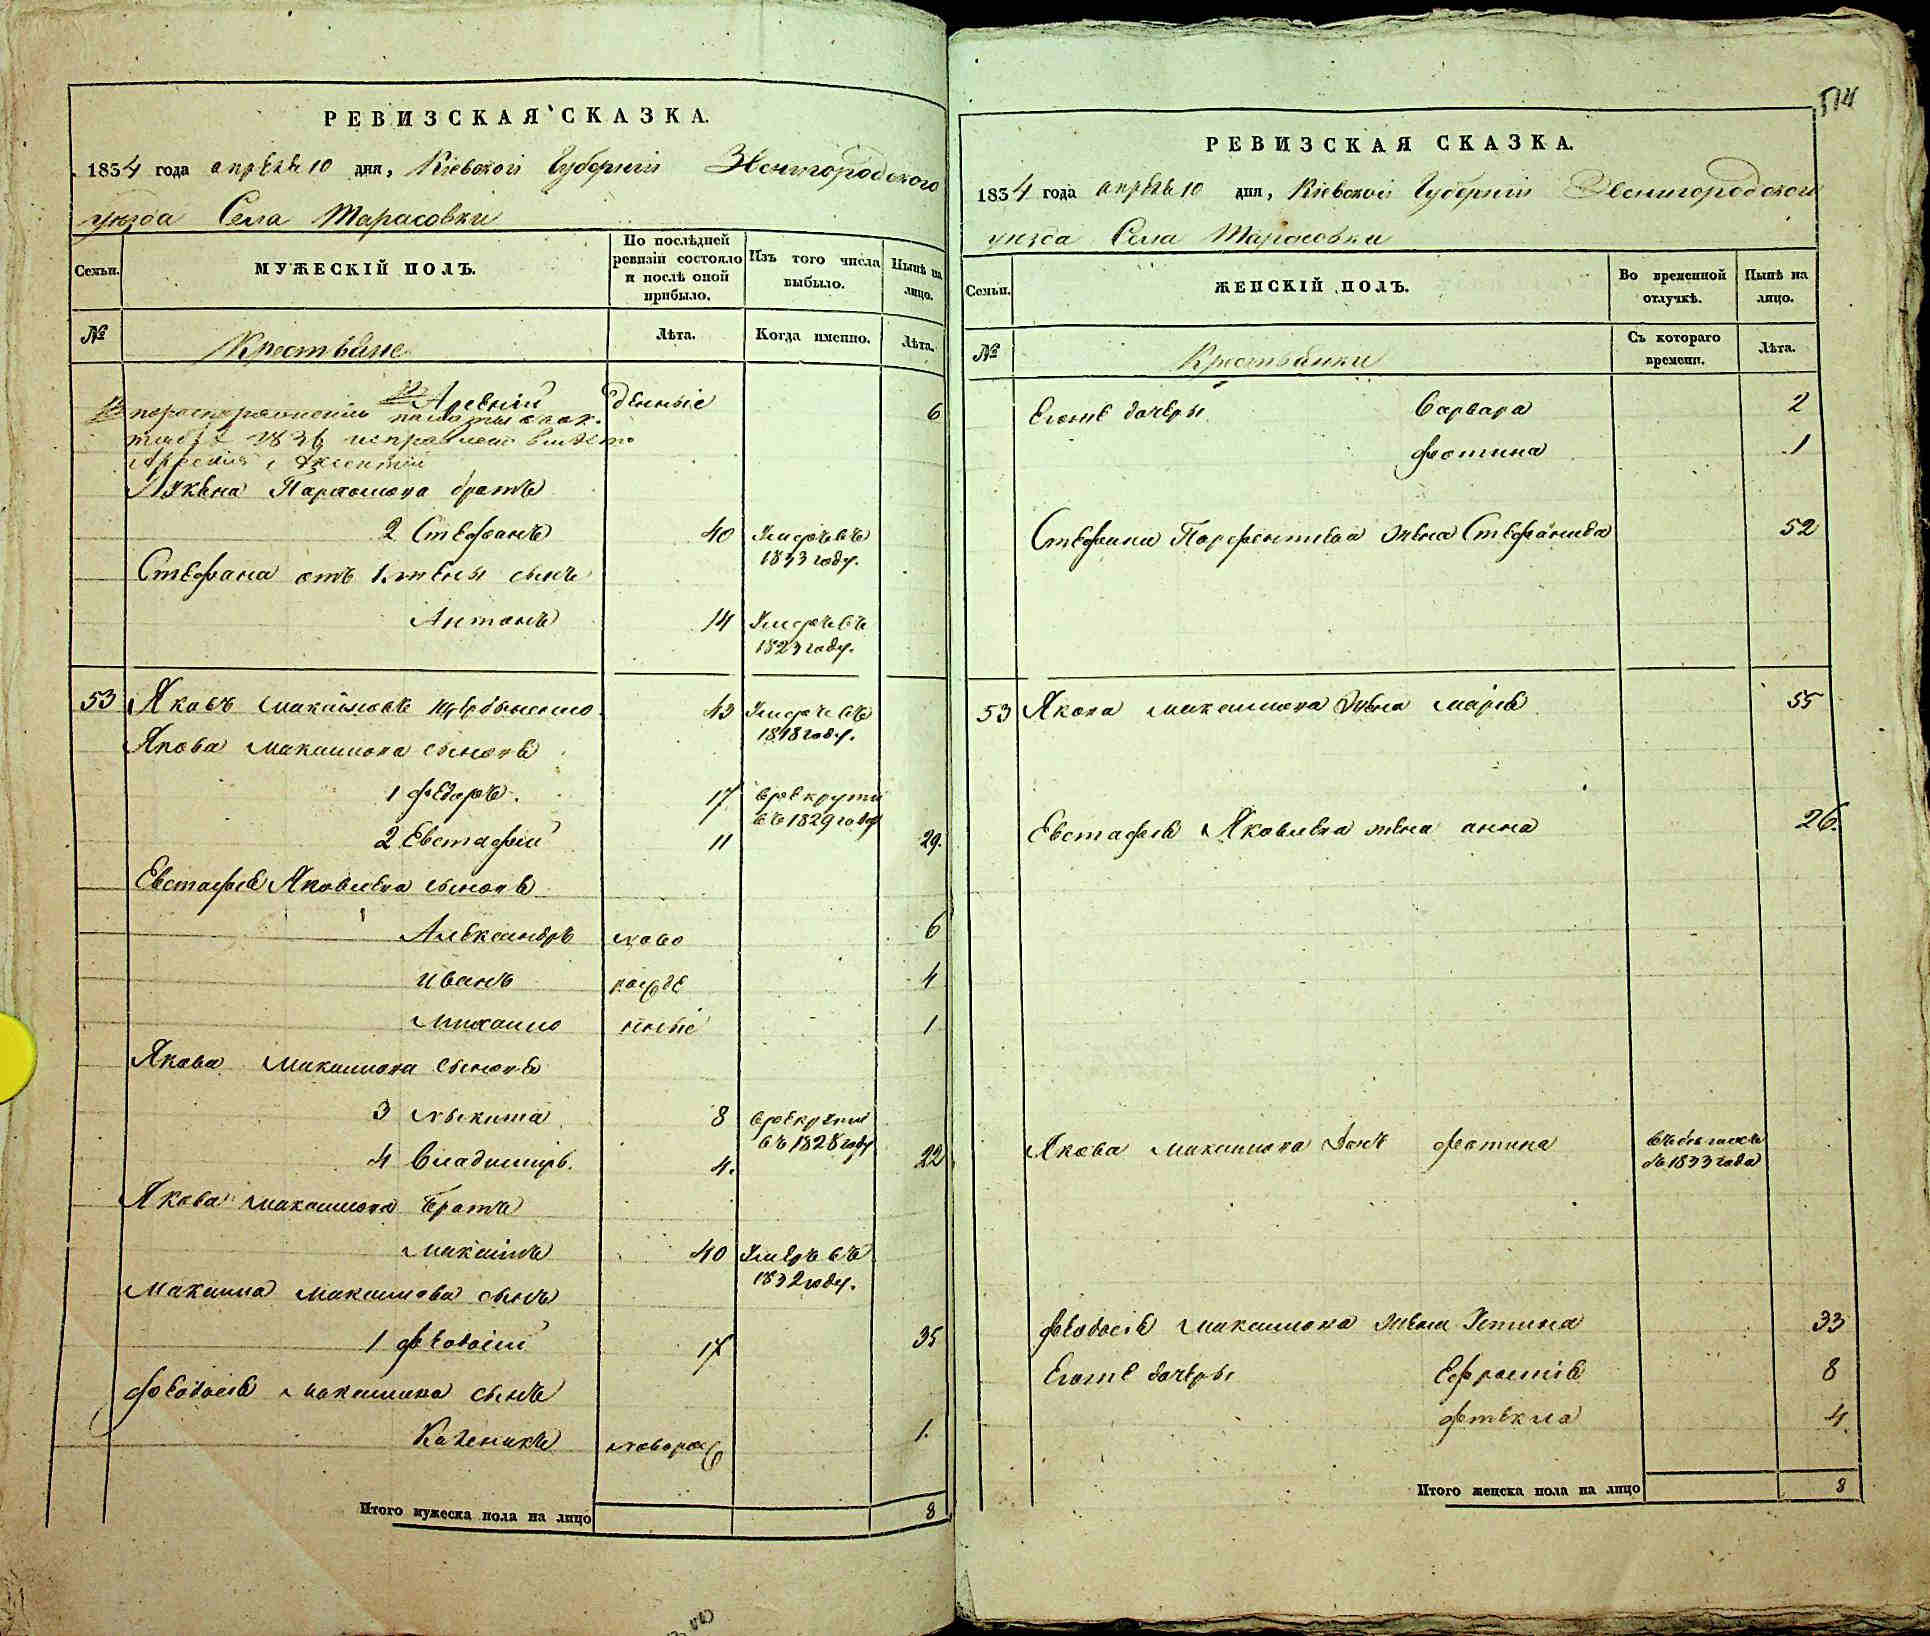 РЕВИЗСКАЯ СКАЗКА.
1834 года апрѣля 10 дня, Кіевской Губерніи Звенигородского
уѣзда Села Тарасовки
Семьи.
МУЖЕСКІЙ ПОЛЪ.
По послѣдней ревизіи состояло и послѣ оной прибыло.
Изъ того числа выбыло.
Нынѣ на лицо.
№
Крестьяне
Лѣта.
Когда именно.
Лѣта.
Арсеній денные 6
исправлено вместо
Арсенія
брать
2 Стефанъ 40 Умеръ въ 1833 году.
Стефана отъ 1 жены сынъ
Антонъ 14 Умеръ въ 1823 году.
53 Яковъ Максимовъ 43 Умеръ въ 1818 году.
Якова Максимова сыновя
1 Федоръ. 17 в рекруты въ 1829 году
2 Евстафій 11 29.
Евстафія Яковлева сыновя
Александръ ново 6
Иванъ рожде 4
Михаило нные 1
Якова Максимова сыновя
3 Никита 8 в рекруты въ 1828 году
4 Владимиръ. 4. 22
Якова Максимова братъ
Максимъ 40 Умеръ въ 1832 году.
Максима Максимова сынъ
1 Феодосій 17 35
Феодосія Максимова сынъ
новорож 1.
Итого мужеска пола на лицо 8
514
РЕВИЗСКАЯ СКАЗКА.
1834 года апрѣля 10 дня, Кіевской Губерніи Звенигородского
уѣзда Села Тарасовки
Семьи.
ЖЕНСКІЙ ПОЛЪ.
Во временной отлучкѣ.
Нынѣ на лицо.
№
Крестьянки
Съ котораго времени.
Лѣта.
Егоже дочери Варвара 2
Фотина 1
Стефана жена Стефанида 52
53 Якова Максимова жена Марія 55
Евстафія Яковлева жена Анна 26.
Якова Максимова дочь Фотина въ бегахъ съ 1833 года
Феодосія Максимова жена Устина 33
Егоже дочери Ефросинія 8
Фтекла 4.
Итого женска пола на лицо 8